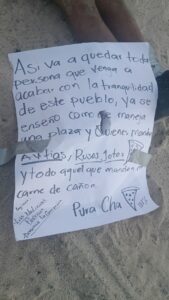 Asi va a quedar toda
persona que venga a
acabar con la tranquilidad
de este pueblo, ya se
enseño como se maneja
una plaza y Quienes mandan
Antias, Rusos, Jotos
y todo aquel que manden de
carne de cañon.
Pura Cha